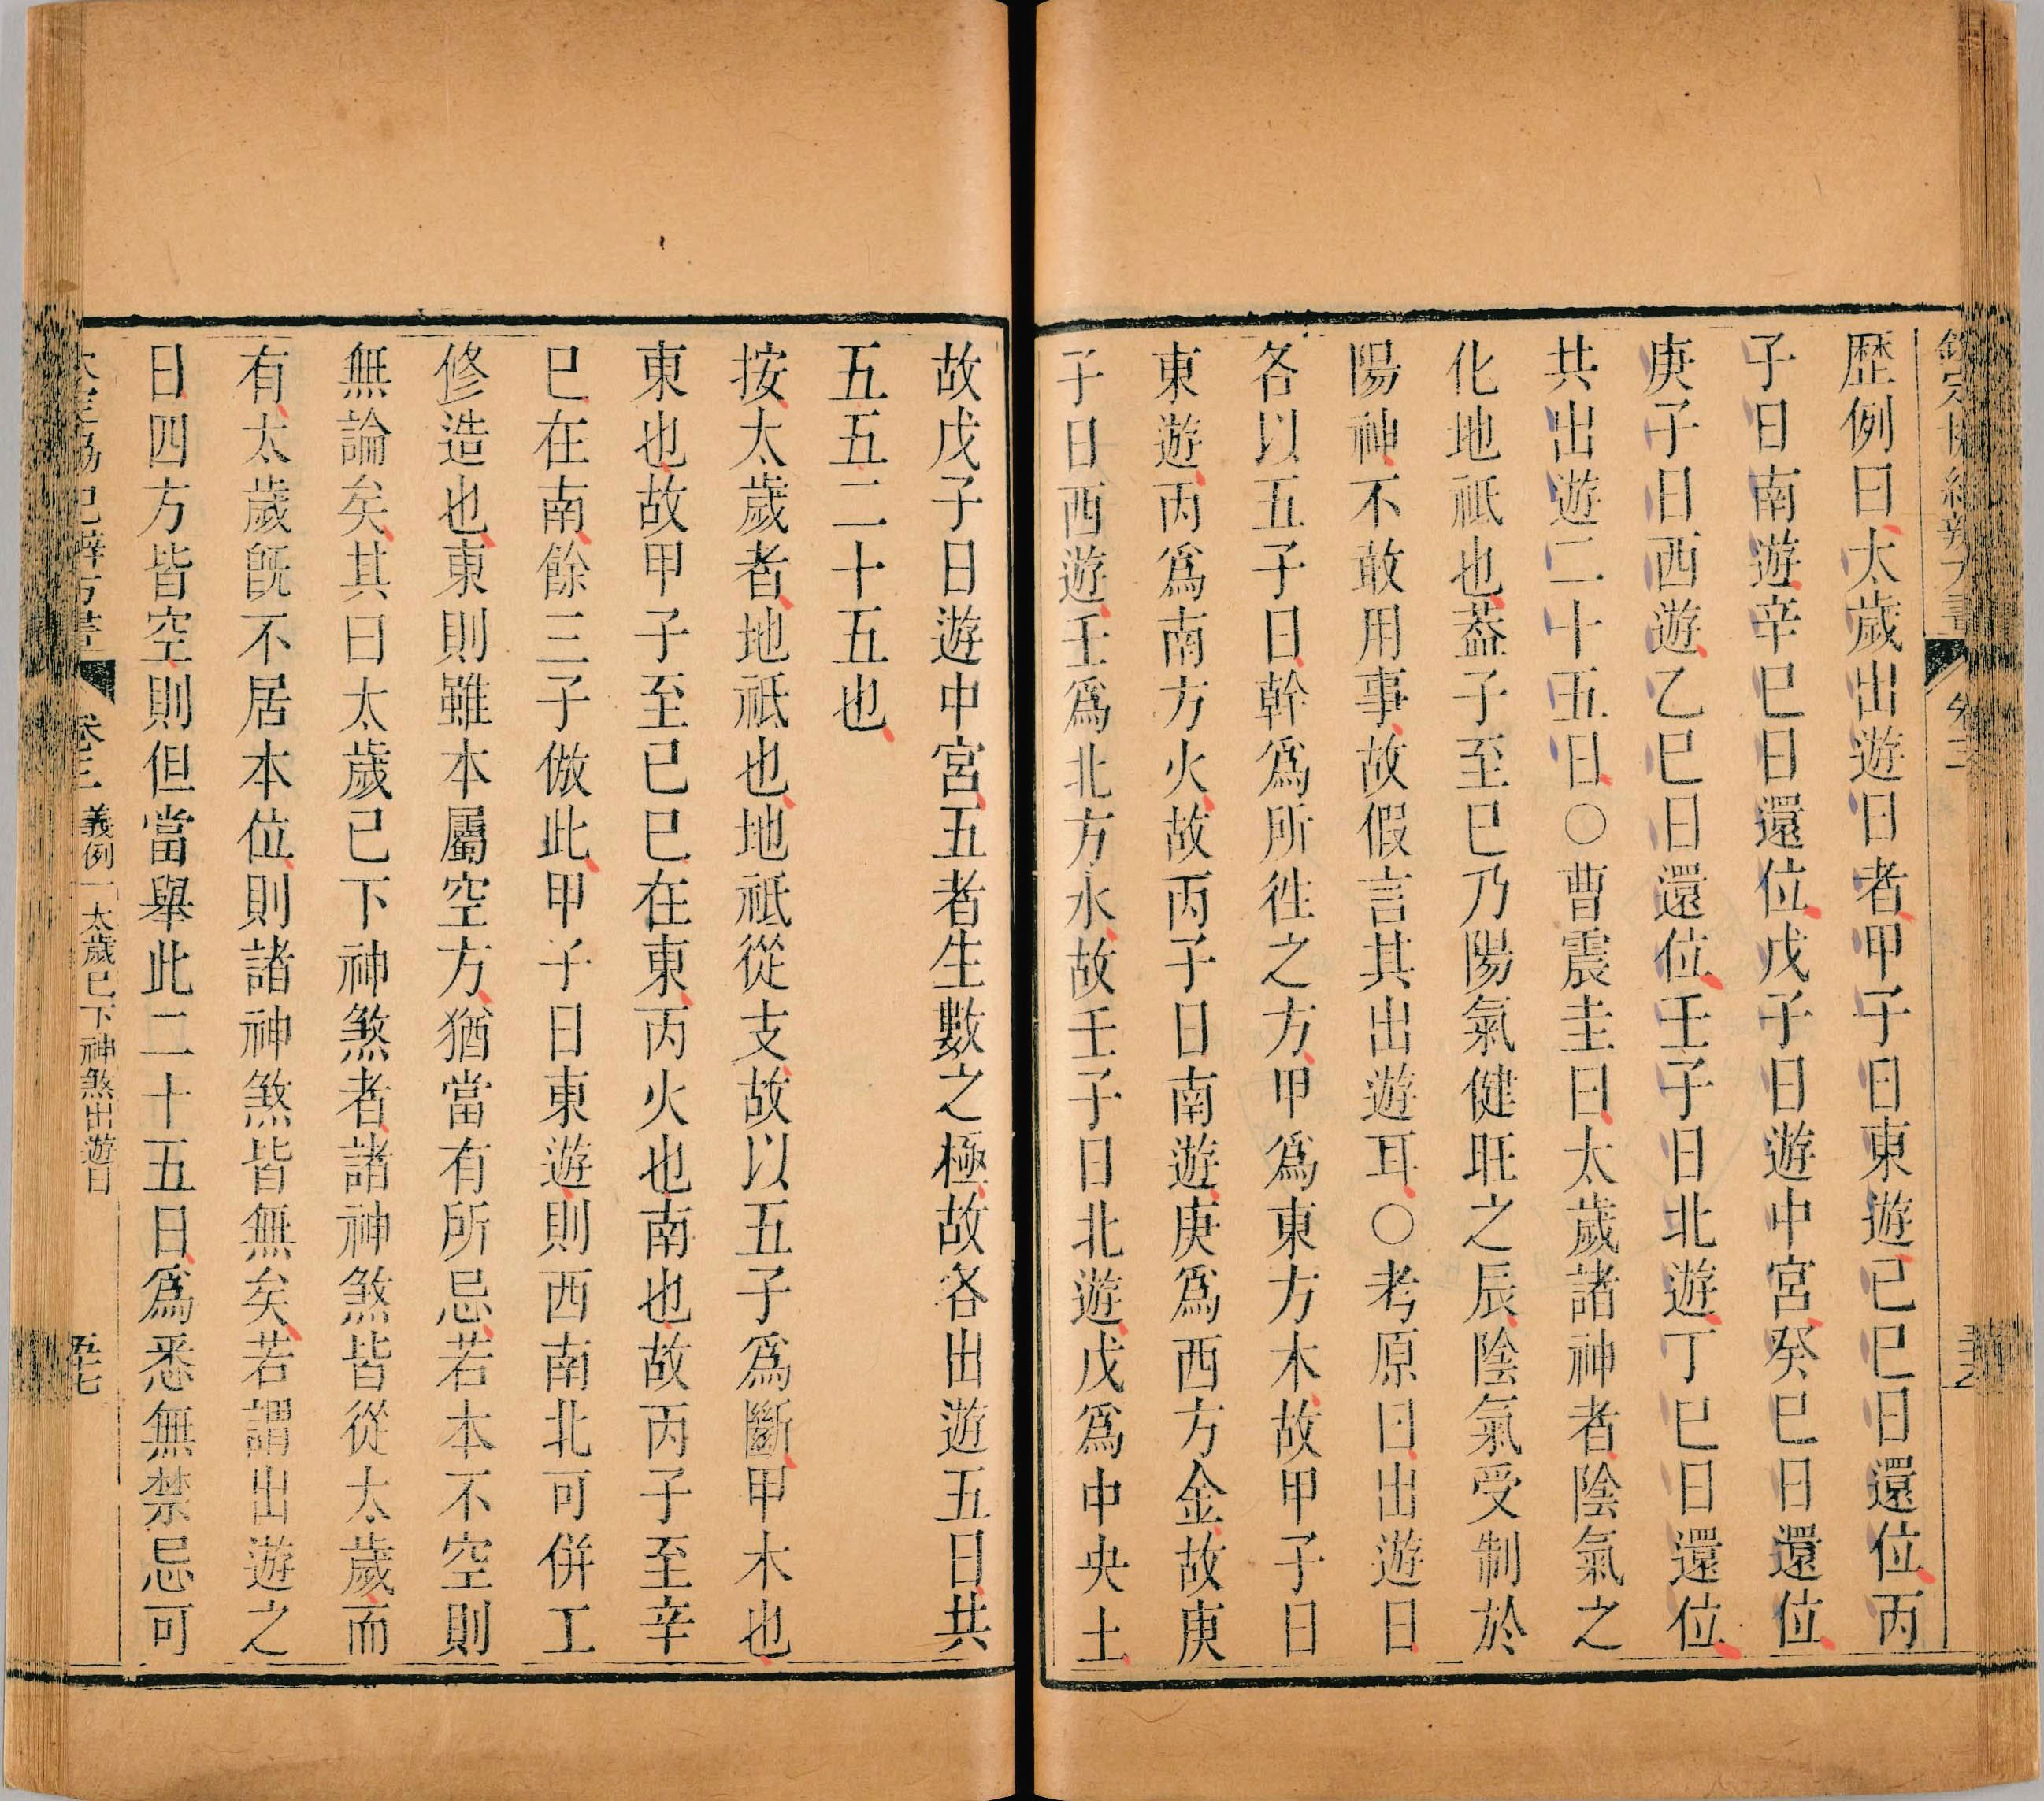 欽定協紀辨方書 卷三
歴例曰太歲出遊日者甲子日東遊己巳日還位丙
子日南遊辛巳日還位戊子日遊中宮癸巳日還位
庚子日西遊乙巳日還位壬子日北遊丁巳日還位
共出遊二十五日○曹震圭曰太歲諸神者陰氣之
化地祇也葢子至巳乃陽氣健旺之辰陰氣受制於
陽神不敢用事故假言其出遊耳○考原曰出遊日
各以五子日幹爲所徃之方甲爲東方木故甲子日
東遊丙爲南方火故丙子日南遊庚爲西方金故庚
子日西遊壬爲北方水故壬子日北遊戊爲中央土
故戊子日遊中宮五者生數之極故各出遊五日共
五五二十五也
按太歲者地祇也地祇從支故以五子爲斷甲木也
東也故甲子至己巳在東丙火也南也故丙子至辛
巳在南餘三子倣此甲子日東遊則西南北可併工
修造也東則雖本屬空方猶當有所忌若本不空則
無論矣其曰太歲已下神煞者諸神煞皆從太歲而
有太歲旣不居本位則諸神煞皆無矣若謂出遊之
日四方皆空則但當舉此二十五日爲悉無禁忌可
欽定協紀辨方書 卷三 義例一 太歲已下神煞出遊日 五七